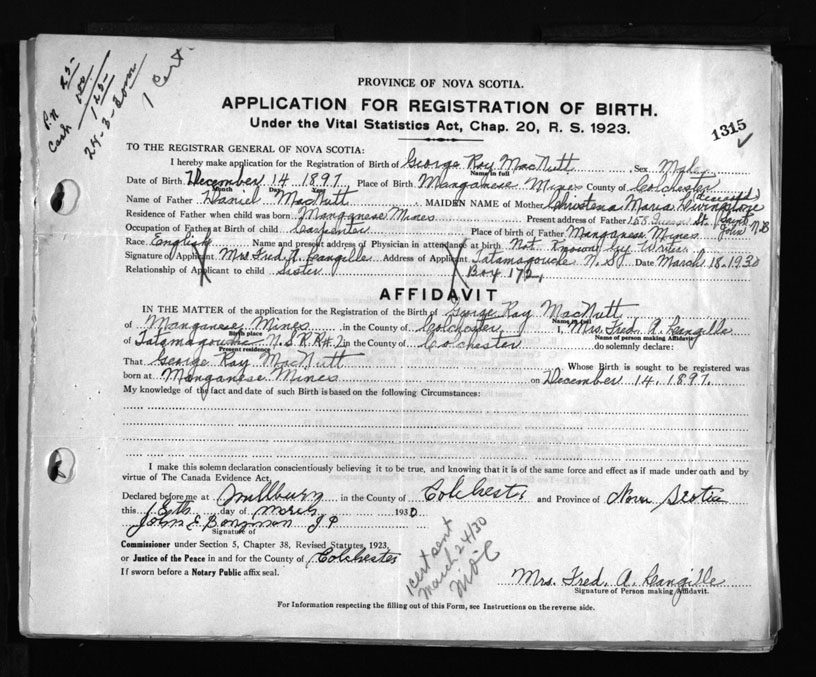 P.N 25-
Cash 1.00
1.25-
24-3-30
1 Cert
PROVINCE OF NOVA SCOTIA.
APPLICATION FOR REGISTRATION OF BIRTH.
Under the Vital Statistics Act, Chap. 20, R. S. 1923.
1315
TO THE REGISTRAR GENERAL OF NOVA SCOTIA:
I hereby make application for the Registration of Birth of George Roy MacNutt Sex Male
Name in full
Date of Birth December 14 1897 Place of Birth Manganese Mines County of Colchester
Month Day Year
(deceased)
Name of Father Daniel MacNutt MAIDEN NAME of Mother Christena Maria Livingstone
Residence of Father when child was born Manganese Mines Present address of Father 155 St. Saint John N.B
Occupation of Father at Birth of child Carpenter Place of birth of Father Manganese Mines
Race English Name and present address of Physician in attendance at birth Not Known by Writer
Signature of Applicant Mrs Fred A. Langille Address of Applicant Tatamagouche N.S. Date March 18. 1930
Relationship of Applicant to child Sister Box 172,
AFFIDAVIT
IN THE MATTER of the application for the Registration of the Birth of George Roy MacNutt
Name in full
of Manganese Mines in the County of Colchester I, Mrs. Fred. A Langille
Birth place Name of person making Affidavit
of Tatamagouche N.S. R.R# 2 in the County of Colchester do solemnly declare:
Present residence
That George Roy MacNutt Whose Birth is sought to be registered was
born at Manganese Mines on December 14. 1897.
My knowledge of the fact and date of such Birth is based on the following Circumstances:
I make this solemn declaration conscientiously believing it to be true, and knowing that it is of the same force and effect as if made under oath and by
virtue of The Canada Evidence Act.
Declared before me at in the County of Colchester and Province of Nova Scotia
this 18th day of March 1930
John E J P
Signature of
Commissioner under Section 5, Chapter 38, Revised Statutes, 1923,
or Justice of the Peace in and for the County of Colchester
If sworn before a Notary Public affix seal.
1 Cert sent
March 24/30
Mrs. Fred. A. Langille
Signature of Person making Affidavit.
For Information respecting the filling out of this Form, see Instructions on the reverse side.